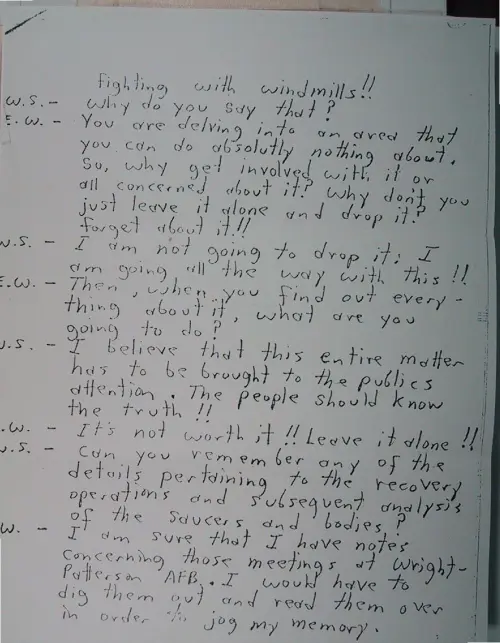 fighting with windmills!!
W.S. - Why do you say that?
E.W. - You are delving into an area that
you can do absolutly nothing about.
So, why get involved with it or
all concerned about it? Why don't you
just leave it alone and drop it?
forget about it!!
W.S. - I am not going to drop it; I
am going all the way with this!!
E.W. - Then, when you find out every-
thing about it, what are you
going to do?
W.S. - I believe that this entire matter
has to be brought to the publics
attention. The people should know
the truth!!
.W. - It's not worth it!! Leave it alone!!
W.S. - Can you remember any of the
details pertaining to the recovery
operations and subsequent analysis
of the saucers and bodies?
W. - I am sure that I have notes
concerning those meetings at Wright-
Patterson AFB. I would have to
dig them out and read them over
in order to jog my memory.